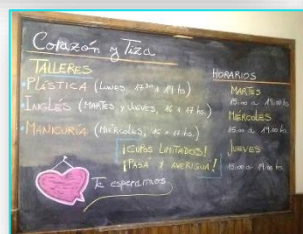 Corazón y Tiza
TALLERES
PLÁSTICA (LUNES, 17:30 a 19 hs)
INGLÉS (MARTES y JUEVES, 16 a 17 hs)
MANICURÍA (MIÉRCOLES, 16 a 17 hs)
¡CUPOS LIMITADOS!
¡PASÁ Y AVERIGUÁ!
Te esperamos
HORARIOS
MARTES
15:00 a 19:00 hs
MIÉRCOLES
15:00 a 19:00 hs
JUEVES
15:00 a 19:00 hs